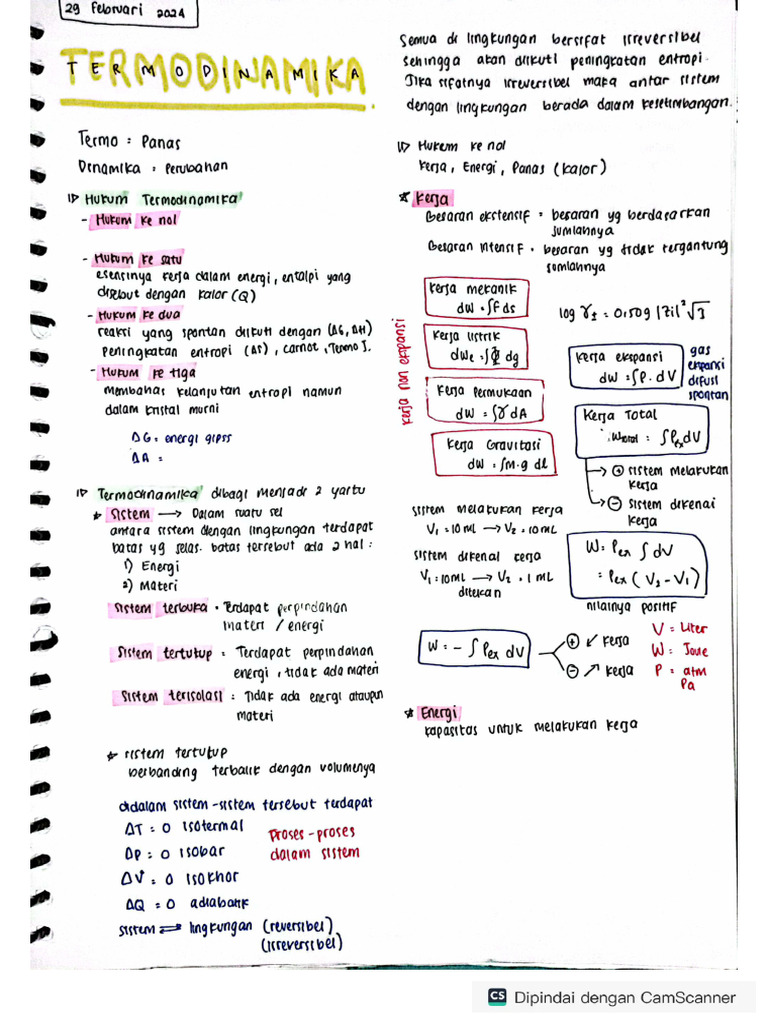 29 Februari 2024
TERMODINAMIKA
Termo : Panas
Dinamika : Perubahan
1▷ Hukum Termodinamika
- Hukum ke nol
- Hukum ke satu
esensinya kerja dalam energi, entalpi yang
disebut dengan kalor (Q)
- Hukum ke dua
reaksi yang spontan diikuti dengan (ΔG, ΔH)
Peningkatan entropi (ΔS), carnot, Termo I.
- Hukum ke tiga
membahas kelanjutan entropi namun
dalam kristal murni
ΔG = energi gipss
ΔA =
1▷ Termodinamika dibagi menjadi 2 yaitu
* Sistem → Dalam suatu sel
antara sistem dengan lingkungan terdapat
batas yg jelas. batas tersebut ada 2 hal :
1) Energi
2) Materi
Sistem terbuka = Terdapat perpindahan
materi / energi
Sistem tertutup = Terdapat perpindahan
energi, tidak ada materi
Sistem terisolasi : Tidak ada energi ataupun
materi
* sistem tertutup
berbanding terbalik dengan volumenya
didalam sistem-sistem tersebut terdapat
ΔT = 0 isotermal
ΔP = 0 isobar
ΔV = 0 isokhor
ΔQ = 0 adiabatik
Proses-proses
dalam sistem
sistem ⇌ lingkungan (reversibel)
(irreversibel)
Semua di lingkungan bersifat irreversibel
sehingga akan diikuti peningkatan entropi.
Jika sifatnya irreversibel maka antar sistem
dengan lingkungan berada dalam kesetimbangan.
1▷ Hukum ke nol
Kerja, Energi, Panas (kalor)
* Kerja
Besaran ekstensif = besaran yg berdasarkan
jumlahnya
Besaran intensif = besaran yg tidak tergantung
jumlahnya
Kerja non ekspansi
kerja mekanik
dW = ∫F ds
kerja listrik
dWe = ∫ϕ dq
Kerja Permukaan
dW = ∫γ dA
Kerja Gravitasi
dW = ∫m.g dl
log γ± = 0,509 |Zi|² √I
kerja ekspansi
dW = ∫P. dV
gas
ekspansi
difusi
spontan
Kerja Total
Wtotal = ∫Pex dV
→ ⊕ sistem melakukan
kerja
→ ⊖ sistem dikenai
kerja
sistem melakukan kerja
V₁ = 10 mL → V₂ = 10 mL
sistem dikenai kerja
V₁ = 10 mL → V₂ = 1 mL
ditekan
W = Pex ∫dV
= Pex (V₂ - V₁)
nilainya positif
W = - ∫ Pex dV
⊕ ↙ kerja
⊖ ↗ kerja
V = Liter
W = Joule
P = atm
Pa
* Energi
kapasitas untuk melakukan kerja
CS Dipindai dengan CamScanner